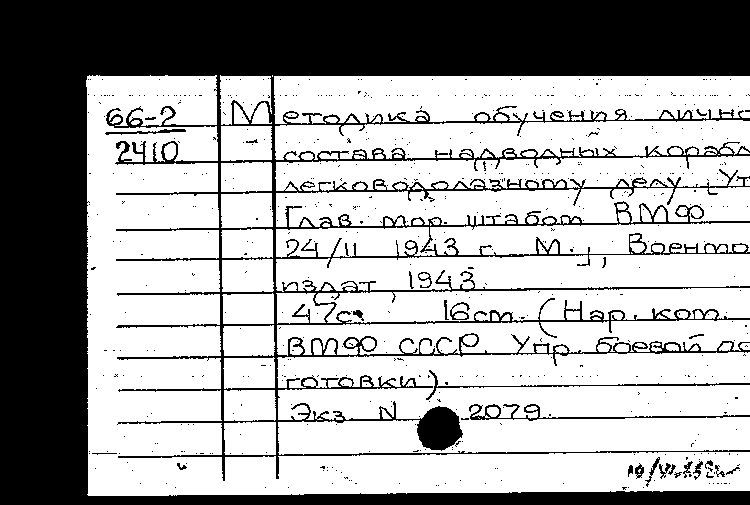 66-2
2410
Методика обучения лично
состава надводных корабл
легководолазному делу. [Ут
Глав. мор. штабом ВМФ
24/II 1943 г. М.], Военмо
издат, 1943.
47с. 16см. (Нар. ком.
ВМФ СССР. Упр. боевой по
готовки).
Экз. N 2079.